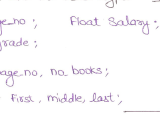 ge_no ;  Float Salary ;
grade ;
page_no, no_books ;
First, middle, last ;